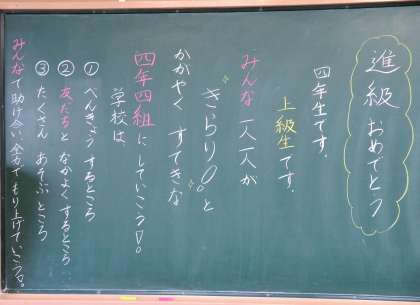 進級おめでとう
四年生です。
上級生です。
みんな一人一人が
きらり○。と
かがやくすてきな
四年四組にしていこう!。
学校は、
①べんきょうするところ
②友だちとなかよくするところ
③たくさんあそぶところ
みんなで助け合い全力でもり上げていこう!。